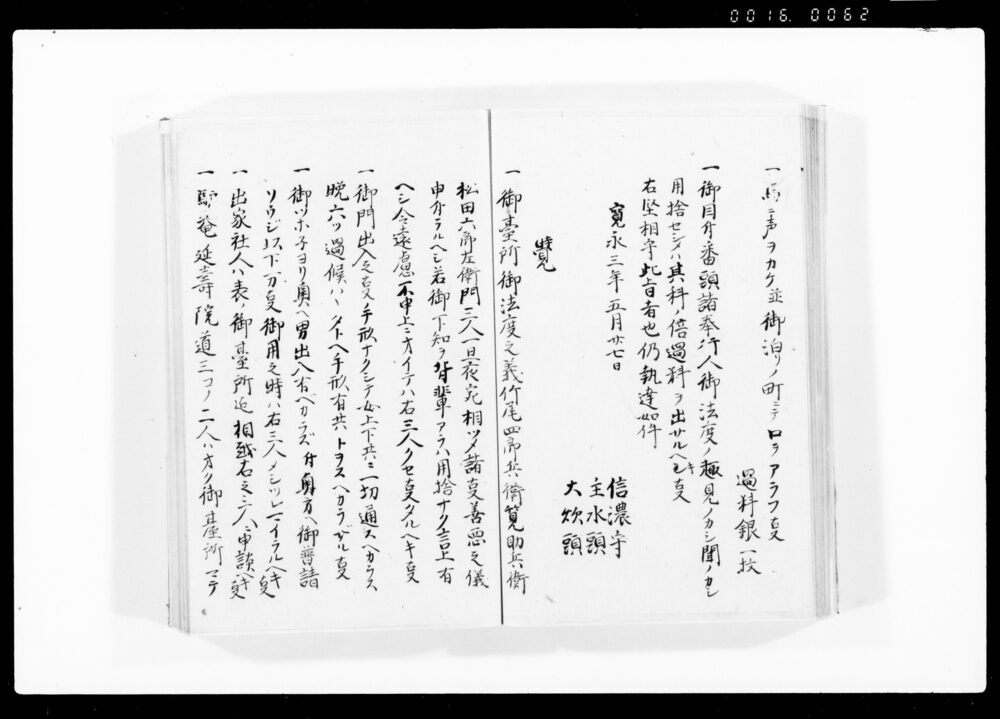 0016.0062
一 馬ニ声ヲカケ並御泊リノ町ニテ口ラアラフ㕝
過料銀一枚
一 御目付番頭諸奉行人御法度ノ趣見ノカシ聞ノカシ
用捨セシメハ其科ノ倍過料ヲ出サルヘキ㕝
右堅相守此旨者也仍執達如件
寛永三年五月廿七日
信濃守
主水頭
大炊頭
覺
一 御臺所御法度之義竹尾四郎兵衛筧助兵衛
松田六郎左衛門三人一日一夜宛相ツメ諸㕝善悪之儀
申付ラルヘシ若御下知ヲ背輩アラハ用捨ナク言上有
ヘシ令遠慮不申上ニ
ヲイテハ右三人クセ㕝タルヘキ㕝
一 御門出入之㕝手形ナクシテ女上下共ニ一切通スヘカラス
晩六ツ過候ハヽタトヘ手形有共トヲスヘカラザル㕝
一 御ツホ子ヨリ奥ヘ男出入有ヘカラズ付奥方ヘ御普請
ソウジ以下万㕝御用之時ハ右三人メシツレマイラルヘキ㕝
一 出家社人ハ表ノ御臺所迄相越右之三人ニ申談ヘキ㕝
一 驢菴延壽院道三コノ二人ハヲク御臺所マテ